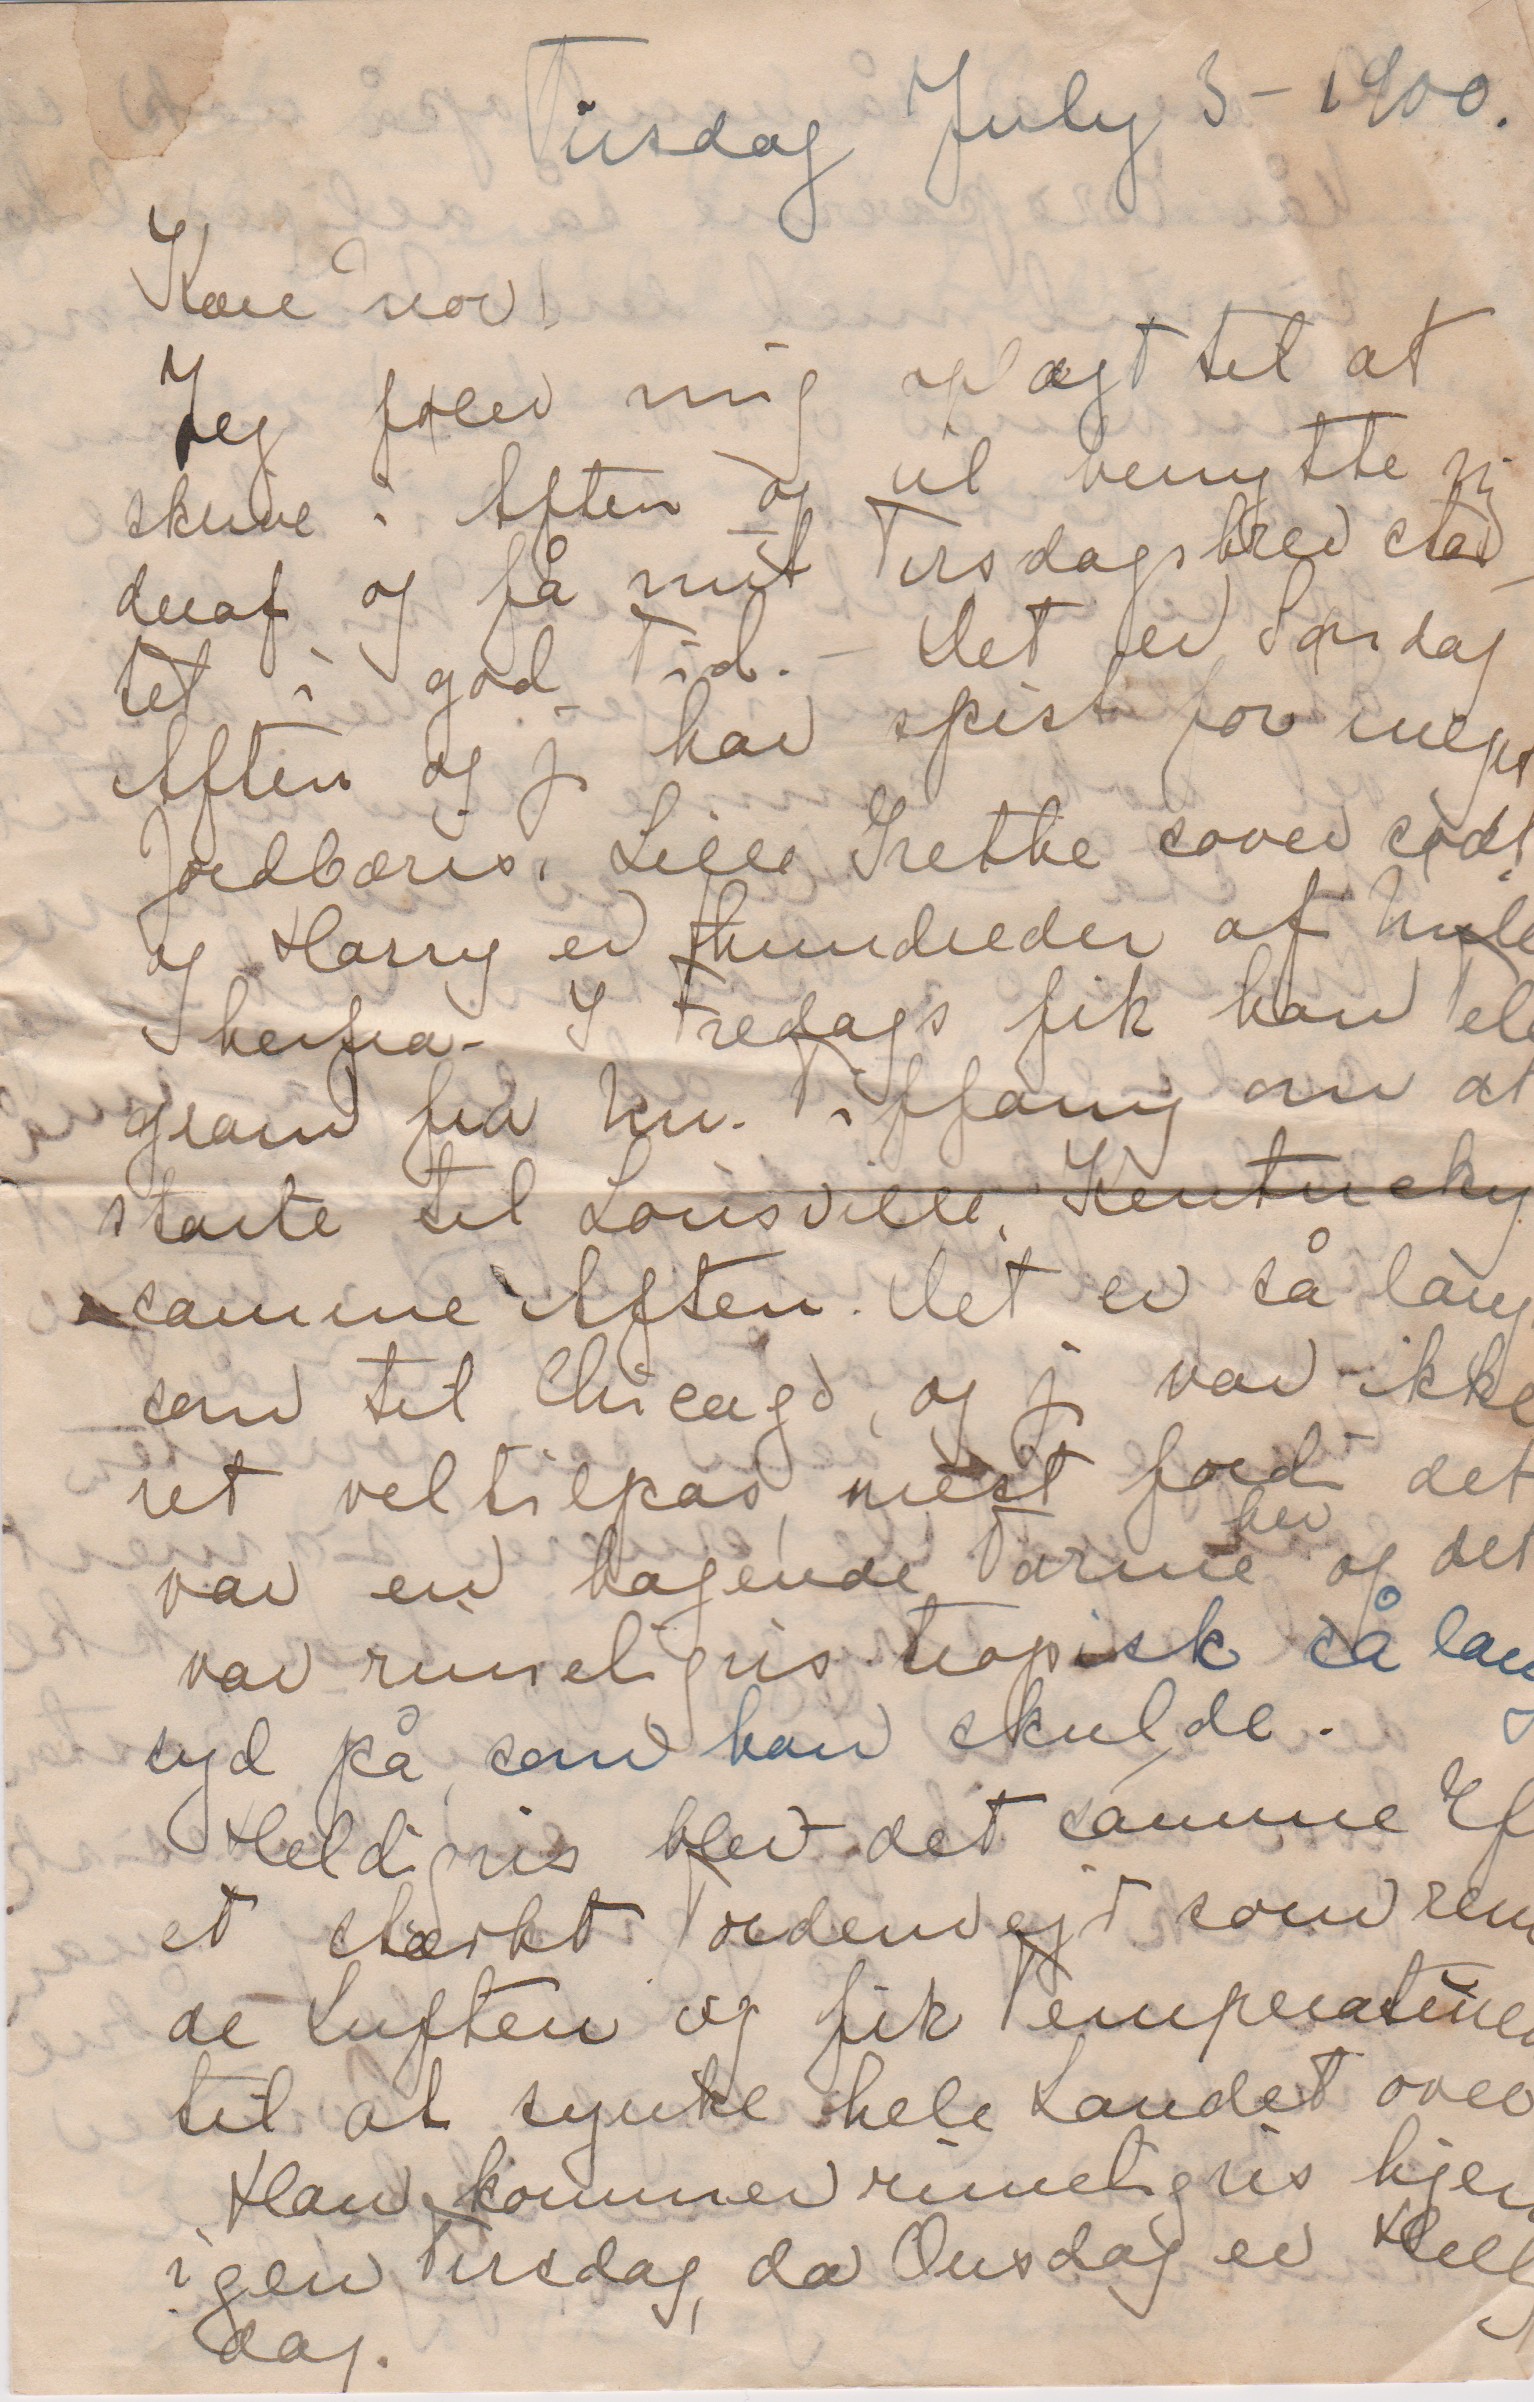 Tirsdag July 3 - 1900.
Kære Mor!
Jeg føler mig oplagt til at
skrive i Aften og vil benytte mig
deraf og få mit Tirsdagsbrev star
tet i god Tid. - Det er Lørdag
Aften og j har spist for meget
Jordbæris. Lille Grethe sover sødt
og Harry er hundreder af Mile
herfra - I Fredags fik han Tele
gram fra Mr. Tiffany om at
starte til Louisville, Kentucky
samme Aften. Det er så langt
som til Chicago, og j var ikke
ret veltilpas, mest fordi det
var en bagende Varme her og det
var rimeligvis tropisk så langt
syd på, som han skulde.
Heldigvis blev det samme Ef
et stærkt Tordenvejr som rens
de Luften og fik Temperaturen
til at synke hele Landet over
Han kommer rimeligvis hjem
igen Tirsdag, da Onsdag er Hellig
dag.